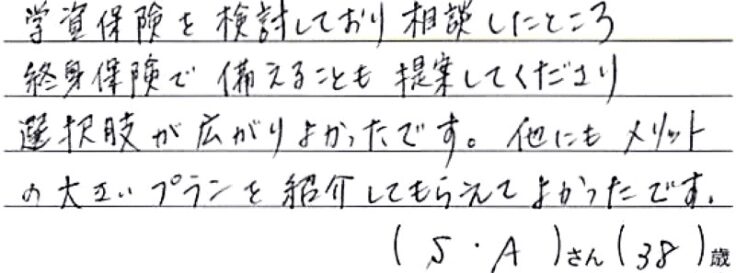 学資保険を検討しており相談したところ
終身保険で備えることも提案してくださり
選択肢が広がりよかったです。他にもメリット
の大きいプランを紹介してもらえてよかったです。
(S・A)さん(38)歳